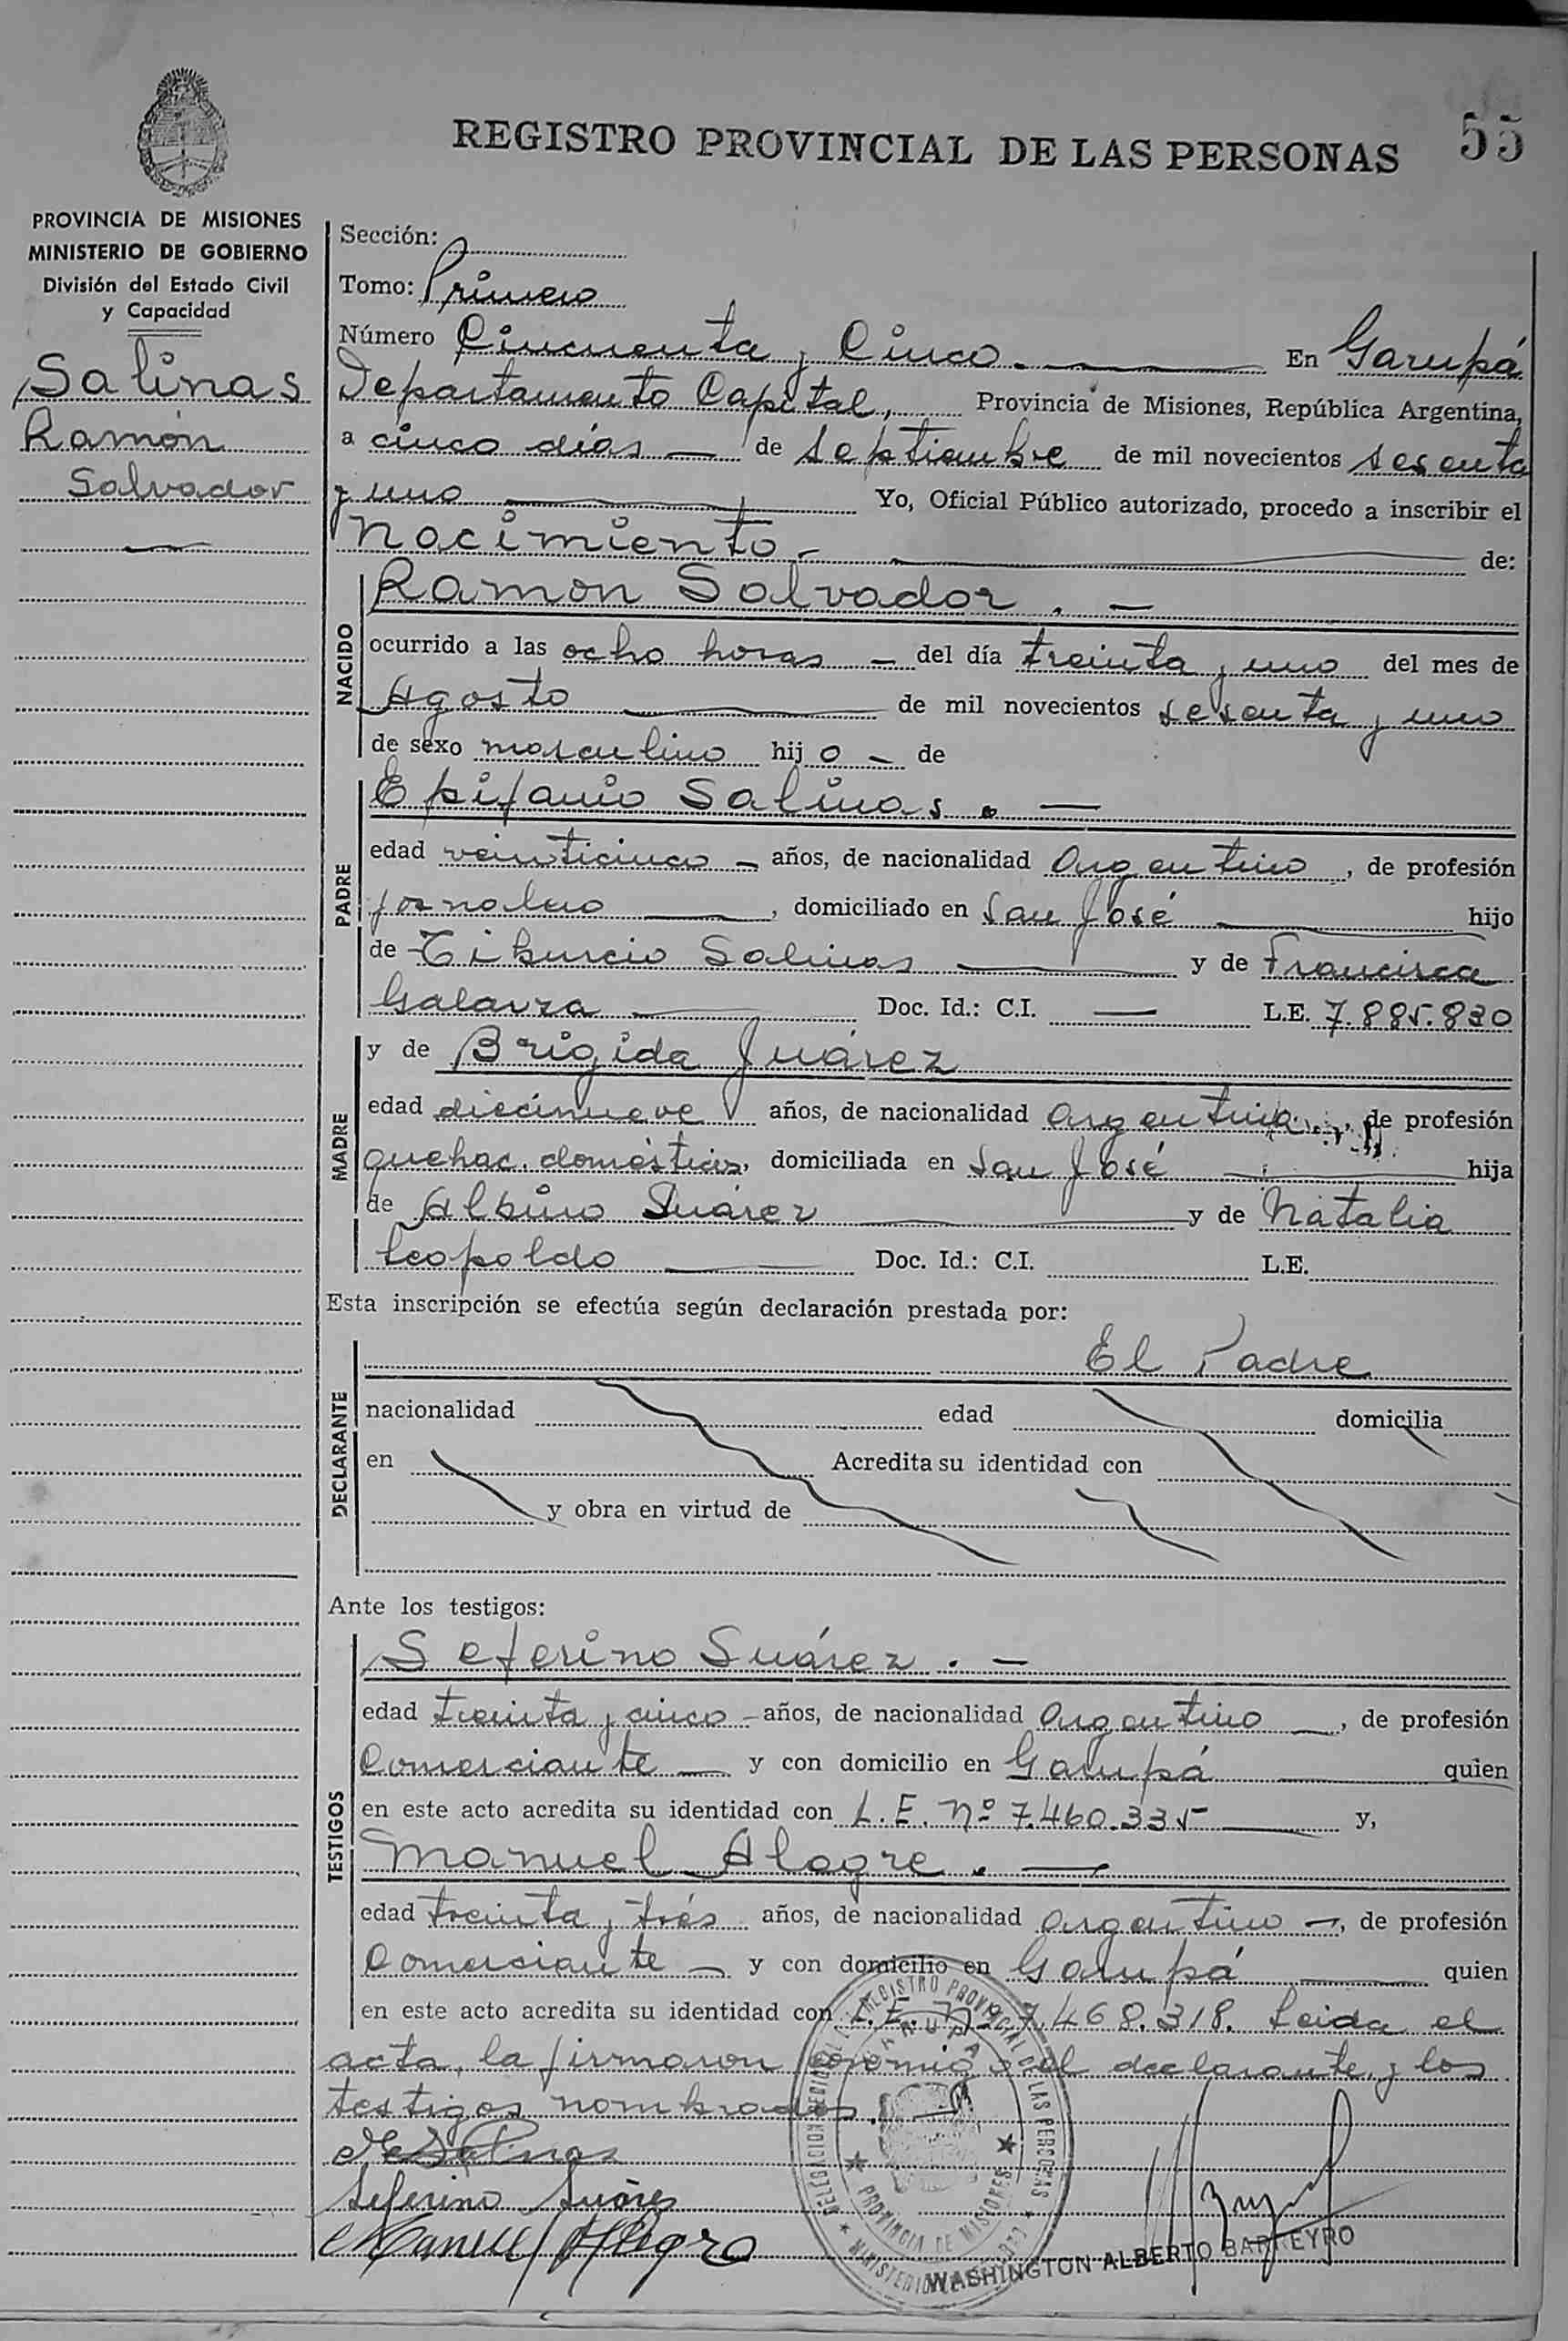 REGISTRO PROVINCIAL DE LAS PERSONAS 55
PROVINCIA DE MISIONES
MINISTERIO DE GOBIERNO
División del Estado Civil
y Capacidad
Salinas
Ramón
Salvador
Sección:
Tomo: Primero
Número Cincuenta y Cinco. En Garupá
Departamento Capital, Provincia de Misiones, República Argentina,
a cinco días de Septiembre de mil novecientos sesenta
y uno Yo, Oficial Público autorizado, procedo a inscribir el
Nacimiento de:
NACIDO
Ramon Salvador. -
ocurrido a las ocho horas - del día treinta y uno del mes de
Agosto de mil novecientos sesenta y uno
de sexo masculino hijo - de
PADRE
Epifanio Salinas. -
edad veinticinco - años, de nacionalidad Argentino, de profesión
jornalero, domiciliado en San José hijo
de Tiburcio Salinas y de Francisca
Galarza Doc. Id.: C.I. — L.E. 7.885.830
MADRE
y de Brígida Juárez
edad diecinueve años, de nacionalidad argentina, de profesión
quehac. domésticos, domiciliada en San José hija
de Albino Suárez y de Natalia
Leopoldo Doc. Id.: C.I. L.E.
Esta inscripción se efectúa según declaración prestada por:
DECLARANTE
El Padre
nacionalidad edad domicilia
en Acredita su identidad con
y obra en virtud de
Ante los testigos:
TESTIGOS
Seferino Suárez. -
edad treinta y cinco - años, de nacionalidad Argentino, de profesión
Comerciante y con domicilio en Garupá quien
en este acto acredita su identidad con L.E. Nº 7.460.335 y,
Manuel Alegre. -
edad treinta y trés años, de nacionalidad argentino -, de profesión
Comerciante - y con domicilio en Garupá quien
en este acto acredita su identidad con L.E. Nº 7.468.318. Leida el
acta, la firmaron conmigo el declarante y los
testigos nombrados.
Seferino Suáres
Manuel Alegre
WASHINGTON ALBERTO BARREYRO
REGISTRO PROVINCIAL DE LAS PERSONAS
GARUPA
PROVINCIA DE MISIONES